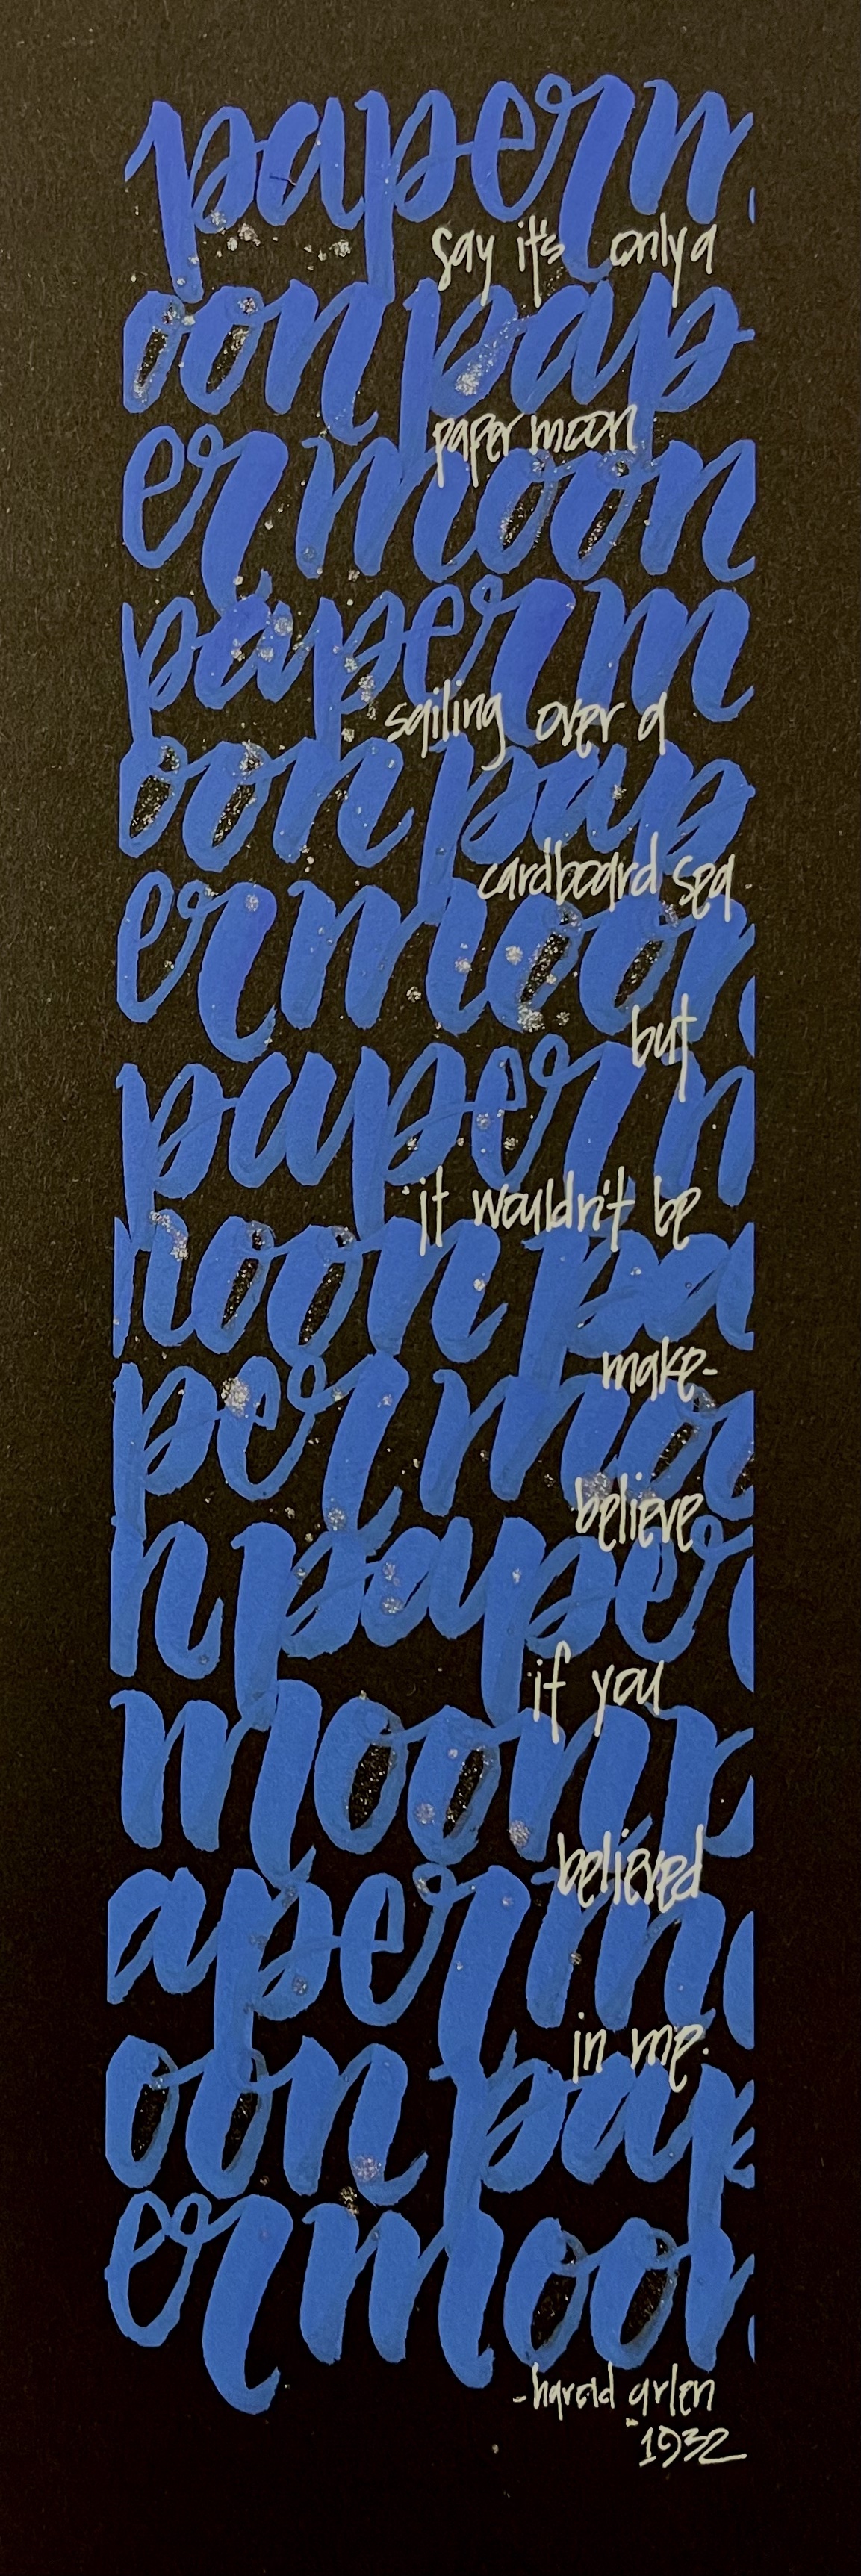 paperm
say it's only a
oonpap
paper moon
ermoon
paperm
sailing over a
oonpap
cardboard sea
ermoon
but
paperm
it wouldn't be
moonpa
make-
permoo
believe
npaper
if you
moonp
believed
aperm
in me.
oonpap
ermoon
-harold arlen
1932